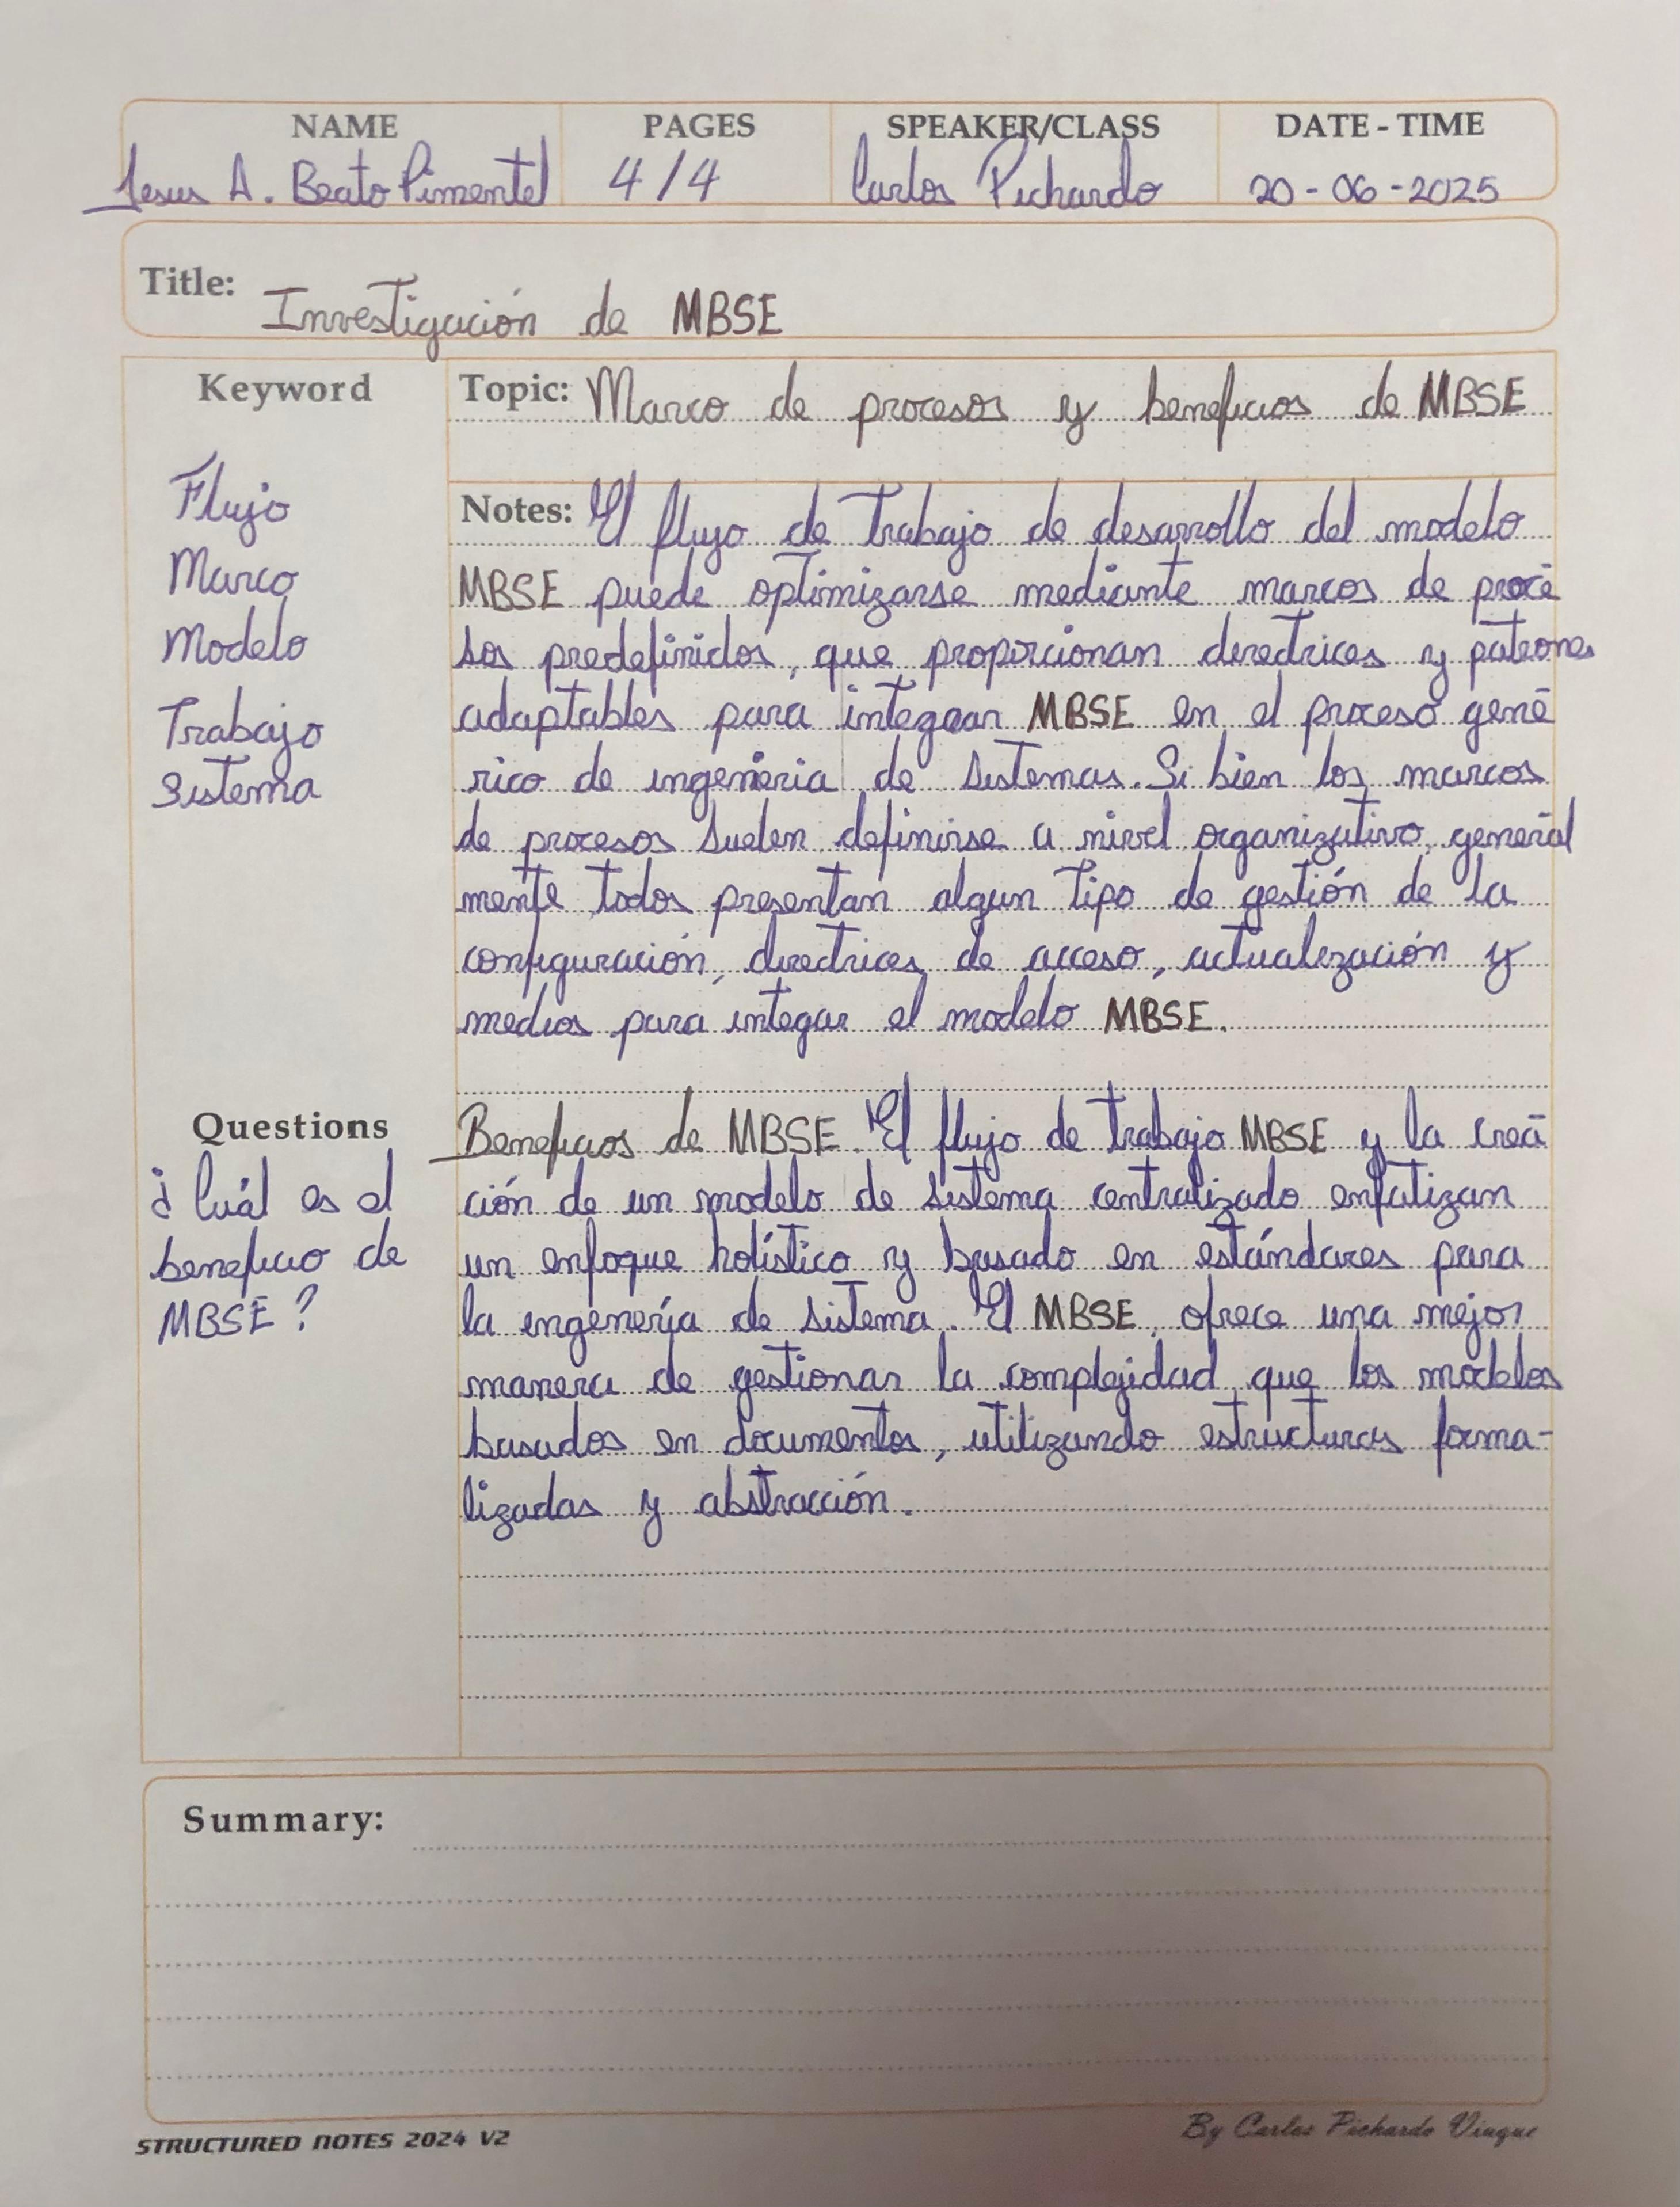 NAME PAGES SPEAKER/CLASS DATE - TIME
Jesus A. Beato Pimentel 4/4 Carlos Pichardo 20-06-2025
Title: Investigación de MBSE
Keyword
Flujo
Marco
Modelo
Trabajo
Sistema
Topic: Marco de procesos y beneficios de MBSE
Notes: El flujo de trabajo de desarrollo del modelo
MBSE puede optimizarse mediante marcos de proce
sos predefinidos, que proporcionan directrices y patrones
adaptables para integrar MBSE en el proceso gene
rico de ingenieria de sistemas. Si bien los marcos
de procesos suelen definirse a nivel organizativo, general
mente todos presentan algun tipo de gestión de la
configuración, directrices de acceso, actualización y
medios para integar el modelo MBSE.
Questions
¿Cuál es el
beneficio de
MBSE?
Beneficios de MBSE. El flujo de trabajo MBSE y la crea
ción de un modelo de sistema centralizado enfatizan
un enfoque holístico y basado en estándares para
la ingenería de sistema. El MBSE, ofrece una mejor
manera de gestionar la complejidad que los modelos
basados en documentos, utilizando estructuras forma-
lizadas y abstracción.
Summary:
STRUCTURED NOTES 2024 V2
By Carlos Pichardo Viuque